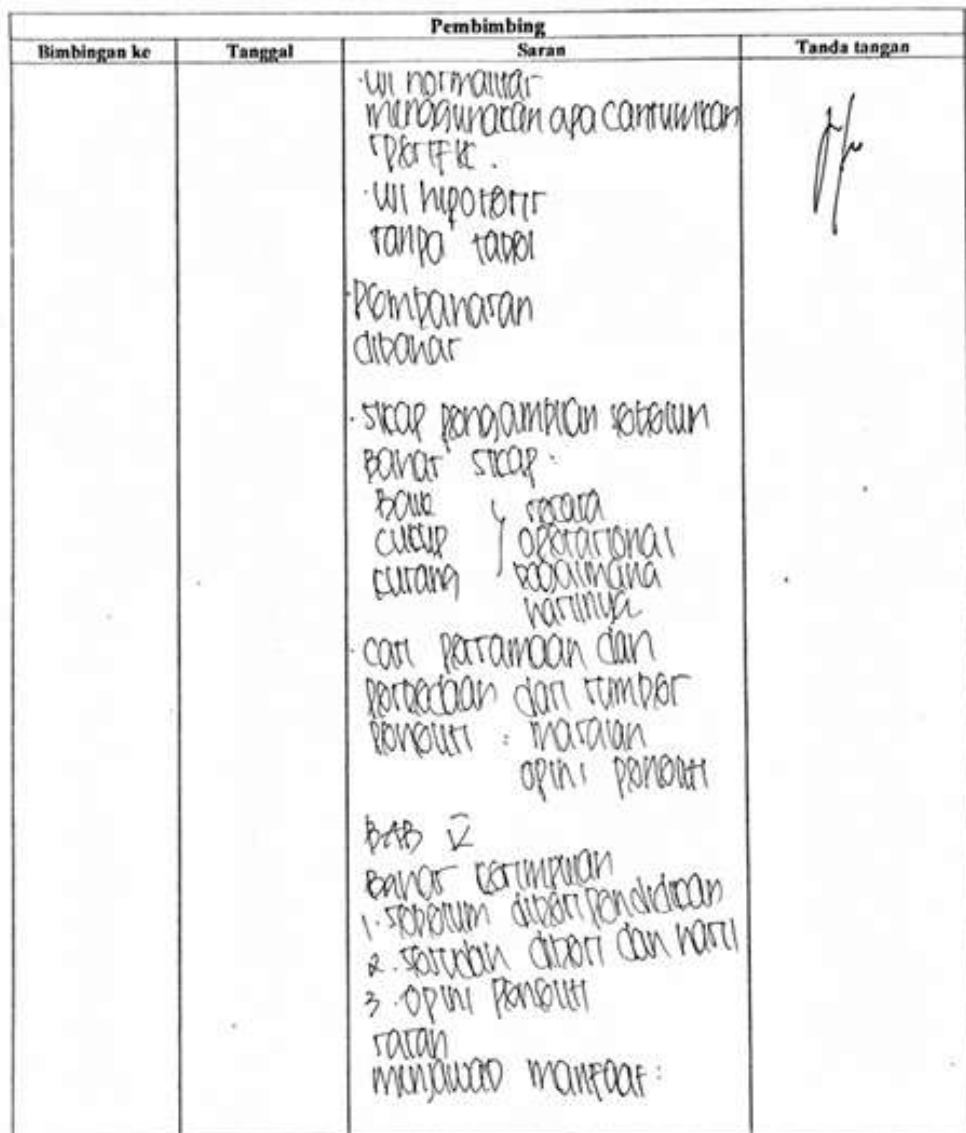 Pembimbing
Bimbingan ke Tanggal Saran Tanda tangan
· Uji normalitas
menggunakan apa cantumkan
spesifik.
· Uji hipotesis
tanpa tabel
· Pembahasan
dibahas
· sikap pengambilan sebelum
Bahas sikap :
Baik } secara
cukup operasional
kurang bagaimana
hasilnya
· cari persamaan dan
perbedaan dari sumber
peneliti : masalah
opini peneliti
BAB V
Bahas kesimpulan
1. sebelum diberi pendidikan
2. sesudah diberi dan hasil
3. opini peneliti
saran
menjawab manfaat :